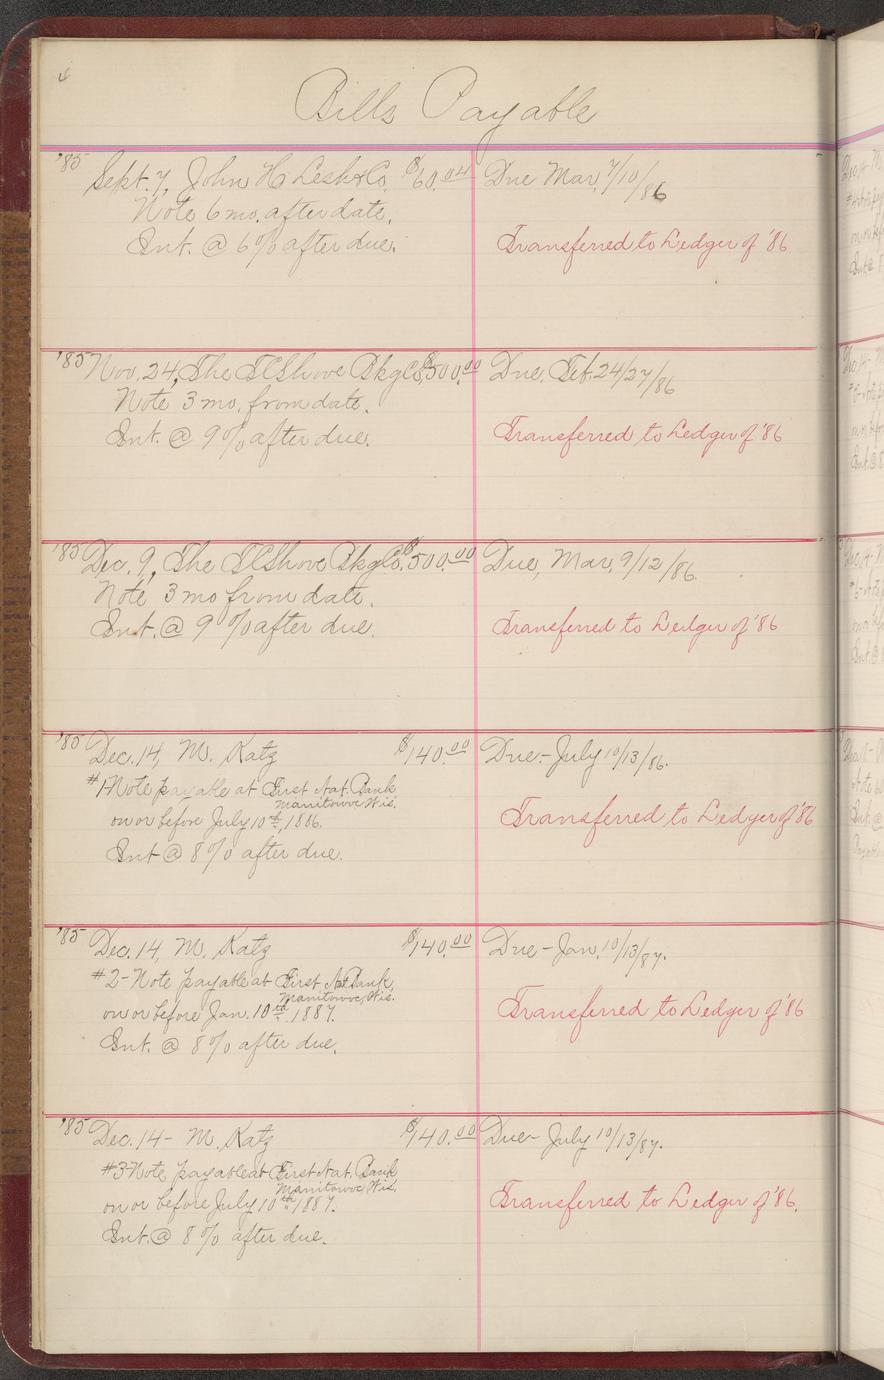 Bills Payable
'85 Sept. 7, John H Lesh & Co. $60.04 Due Mar. 7/10/86
Note 6 mo. after date.
Int. @ 6% after due. Transferred to Ledger of '86
'85 Nov. 24, The TC Shove Bkg Co $500.00 Due, Feb. 24/27/86
Note 3 mo. from date.
Int. @ 9% after due. Transferred to Ledger of '86
'85 Dec. 9, The TC Shove Bkg Co. $500.00 Due, Mar, 9/12/86.
Note 3 mo from date.
Int. @ 9% after due. Transferred to Ledger of '86
'85 Dec. 14, M. Katz $140.00 Due- July 10/13/86.
#1 Note payable at First Nat. Bank
Manitowoc Wis.
on or before July 10th, 1886. Transferred to Ledger of '86
Int @ 8% after due.
'85 Dec. 14, M. Katz $140.00 Due- Jan. 10/13/87.
#2- Note payable at First Nat Bank,
Manitowoc, Wis.
on or before Jan. 10th, 1887. Transferred to Ledger of '86
Int. @ 8% after due.
'85 Dec. 14- M. Katz $140.00 Due- July 10/13/87.
#3 Note payable at First Nat. Bank
Manitowoc, Wis.
on or before July 10th, 1887. Transferred to Ledger of '86.
Int. @ 8% after due.